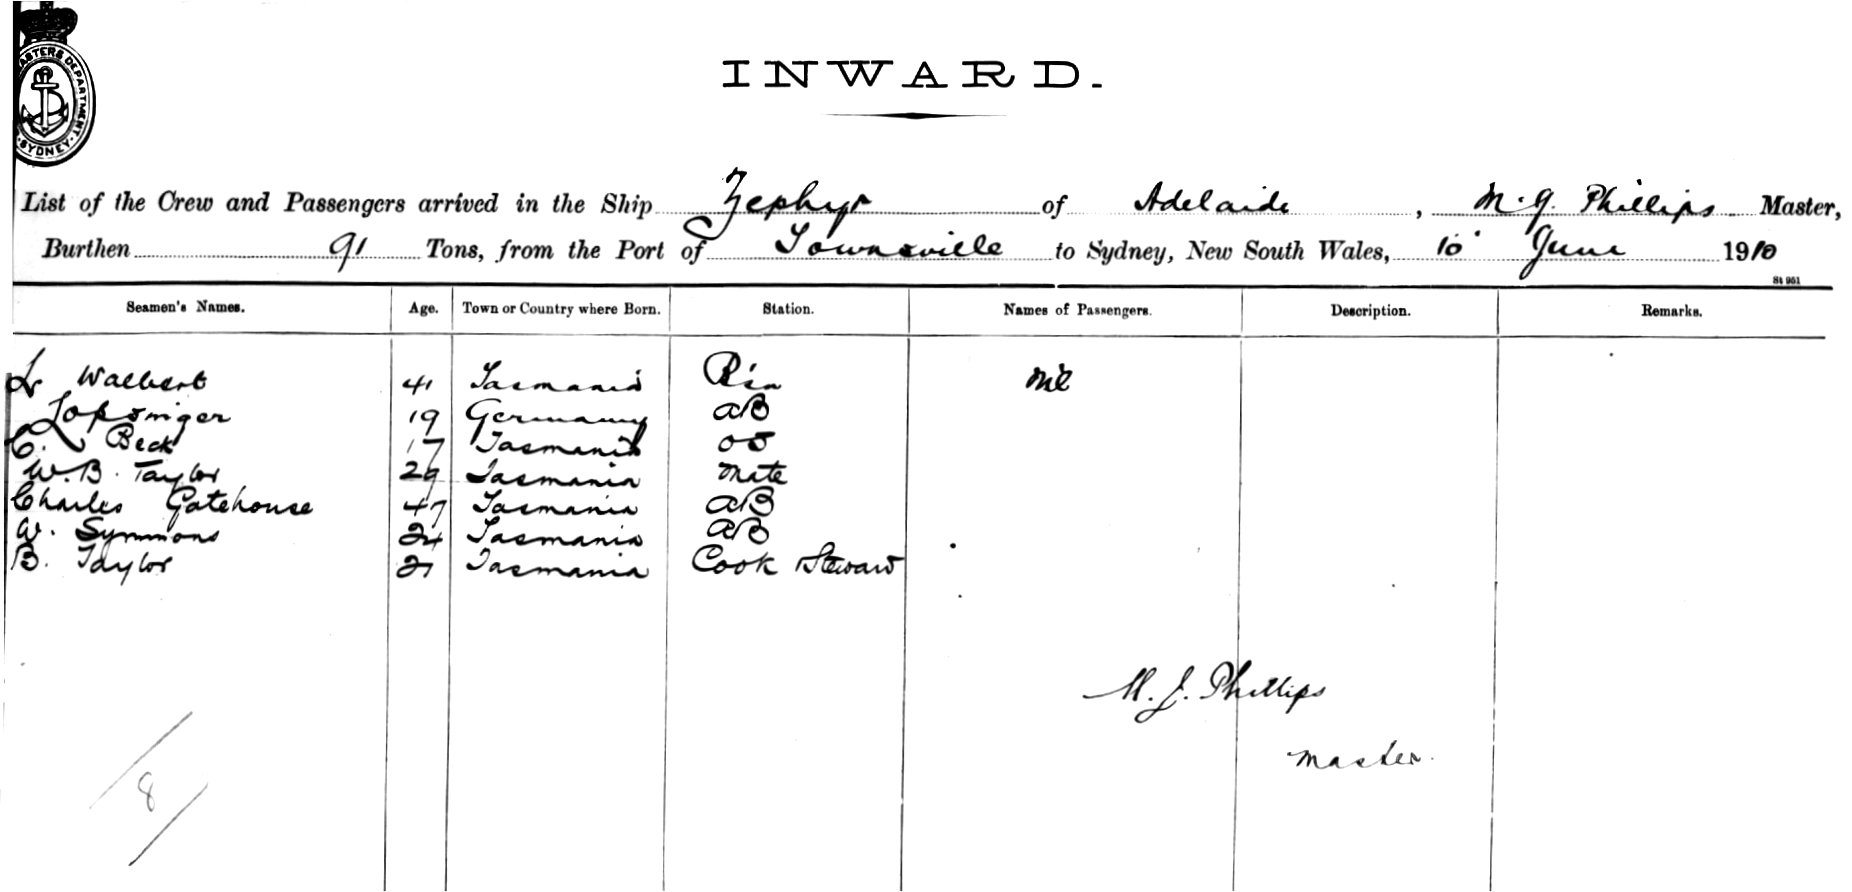 ASTERS DEPARTMENT SYDNEY
INWARD.
List of the Crew and Passengers arrived in the Ship Zephyr of Adelaide, M. J. Phillips Master,
Burthen 91 Tons, from the Port of Townsville to Sydney, New South Wales, 10 June 1910
St 951
Seamen's Names. Age. Town or Country where Born. Station. Names of Passengers. Description. Remarks.
L Walbert 41 Tasmania nil
19 Germany AB
C. Beck 17 Tasmania OS
W. B. Taylor 29 Tasmania Mate
Charles Gatehouse 47 Tasmania AB
W. Symmons 24 Tasmania AB
B. Taylor 21 Tasmania Cook Steward
M. J. Phillips
Master.
8